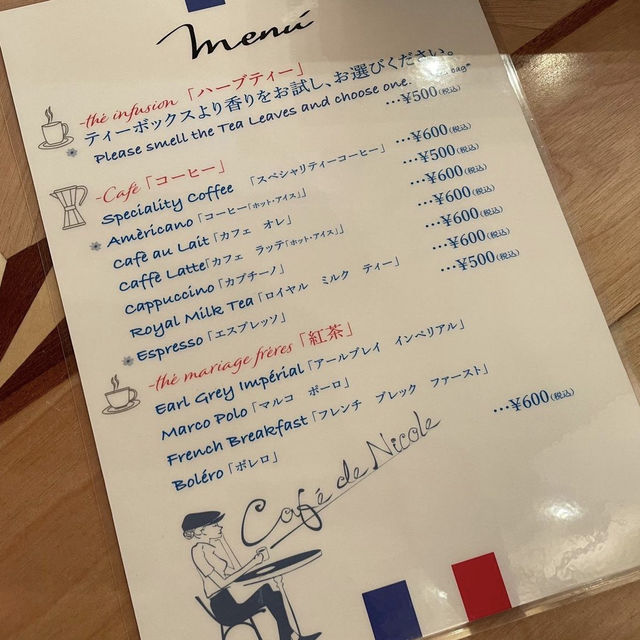 menú
-thé infusion 「ハーブティー」
ティーボックスより香りをお試し、お選びください。
Please smell the Tea Leaves and choose one. bag*
…¥500(税込)
-Café「コーヒー」
Speciality Coffee 「スペシャリティーコーヒー」 …¥600(税込)
Amèricano「コーヒー「ホット・アイス」」 …¥500(税込)
Café au Lait「カフェ オレ」 …¥600(税込)
Caffè Latte「カフェ ラッテ「ホット・アイス」」 …¥600(税込)
Cappuccino「カプチーノ」 …¥600(税込)
Royal Milk Tea「ロイヤル ミルク ティー」 …¥600(税込)
Espresso「エスプレッソ」 …¥500(税込)
-thé mariage frères「紅茶」
Earl Grey Impérial「アールブレイ インペリアル」
Marco Polo「マルコ ポーロ」
French Breakfast「フレンチ ブレック ファースト」
Boléro「ボレロ」 …¥600(税込)
Café de Nicole